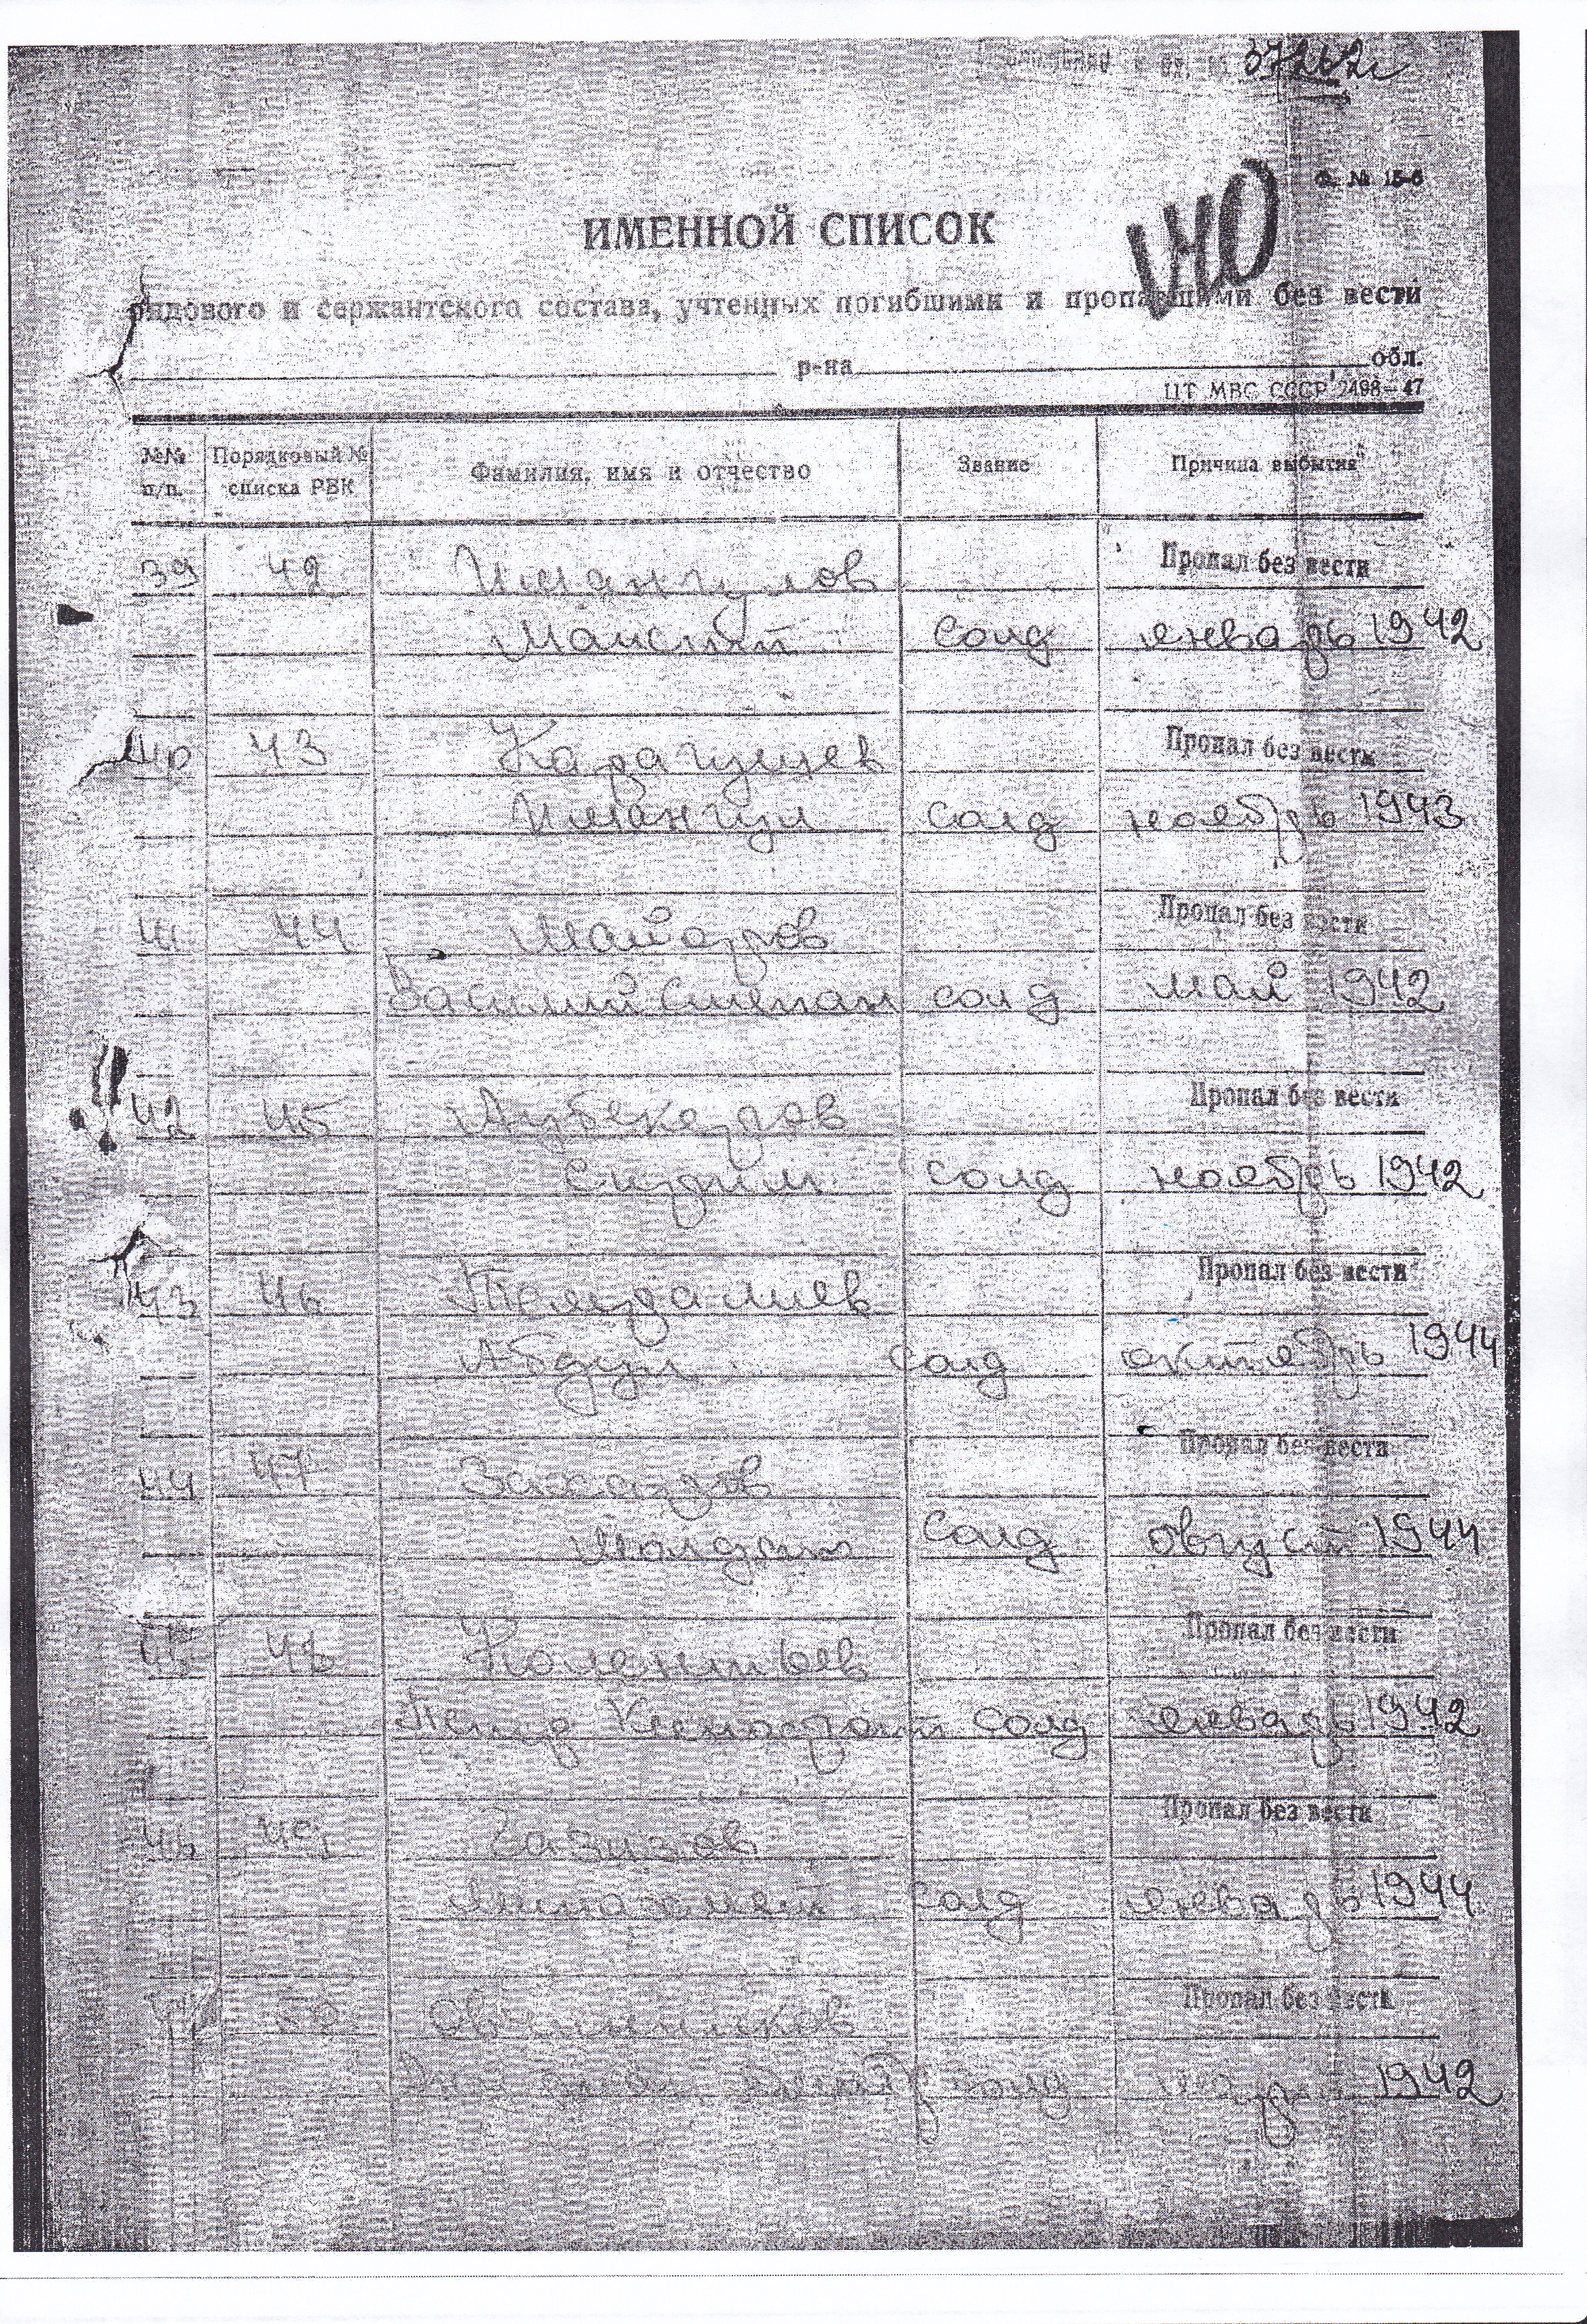 37262с
Ф. № 15-б
ИМЕННОЙ СПИСОК
140
рядового и сержантского состава, учтенных погибшими и пропавшими без вести
р-на обл.
ЦТ МВС СССР 2498—47
№№ п/п. Порядковый № списка РВК Фамилия, имя и отчество Звание Причина выбытия
39 42 Имангулов Пропал без вести
солд январь 1942
40 43 Карагушев Пропал без вести
Имангул солд ноябрь 1943
41 44 Майоров Пропал без вести
Василий Степан солд май 1942
42 45 Пропал без вести
солд ноябрь 1942
43 46 Темралиев Пропал без вести
Абдул солд октябрь 1944
44 47 Захаров Пропал без вести
солд август 1944
45 48 Пропал без вести
Петр солд январь 1942
46 49 Газизов Пропал без вести
Минахмет солд январь 1944
47 50 Овчинников Пропал без вести
солд 1942